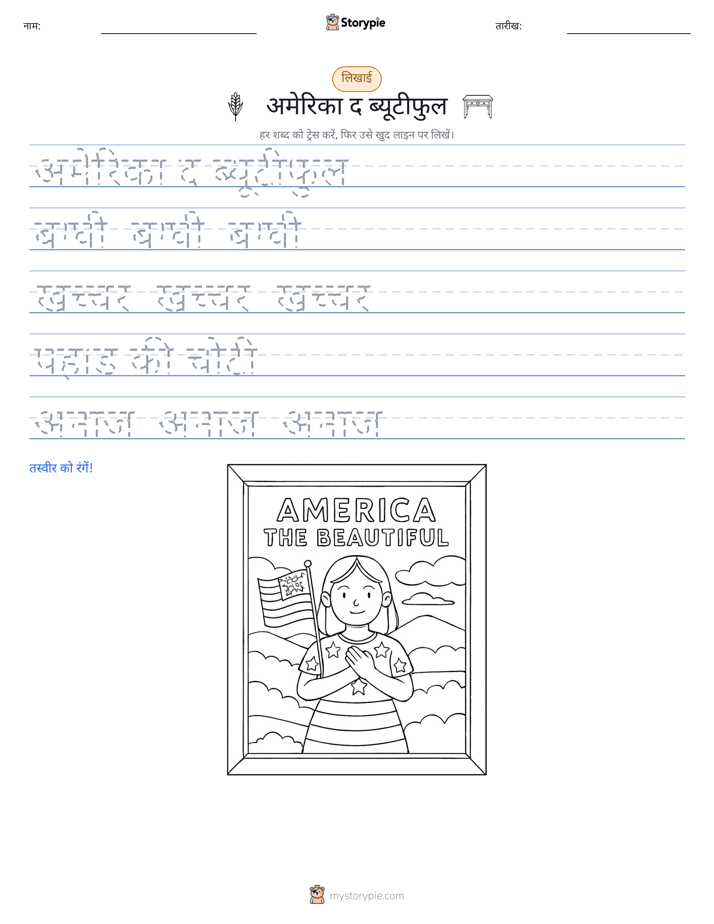 नाम:
Storypie
तारीख:
लिखाई
अमेरिका द ब्यूटीफुल
हर शब्द को ट्रेस करें, फिर उसे खुद लाइन पर लिखें।
अमेरिका द ब्यूटीफुल
बग्घी बग्घी बग्घी
खच्चर खच्चर खच्चर
पहाड की चोटी
अनाज अनाज अनाज
तस्वीर को रंगें!
AMERICA
THE BEAUTIFUL
mystorypie.com